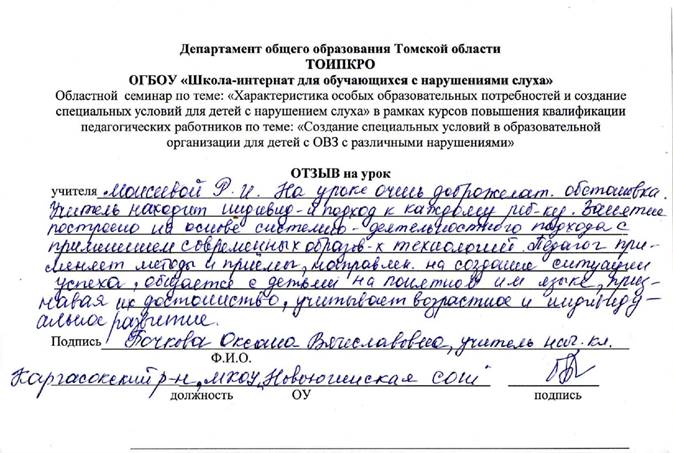 Департамент общего образования Томской области
ТОИПКРО
ОГБОУ «Школа-интернат для обучающихся с нарушениями слуха»
Областной семинар по теме: «Характеристика особых образовательных потребностей и создание
специальных условий для детей с нарушением слуха» в рамках курсов повышения квалификации
педагогических работников по теме: «Создание специальных условий в образовательной
организации для детей с ОВЗ с различными нарушениями»
ОТЗЫВ на урок
учителя Моисеевой Р. И. На уроке очень доброжелат. обстановка.
Учитель находит индивид-й подход к каждому реб-ку. Занятие
построено на основе системно-деятельностного подхода с
применением современных образов-х технологий. Педагог при-
меняет методы и приёмы, направлен. на создание ситуации
успеха, общается с детьми на понятном им языке, приз-
навая их достоинство, учитывает возрастное и индивиду-
альное развитие.
Подпись Почкова Оксана Вячеславовна, учитель нач. кл.
Ф.И.О.
Каргасокский р-н, МКОУ "Новоюгинская СОШ"
должность ОУ подпись